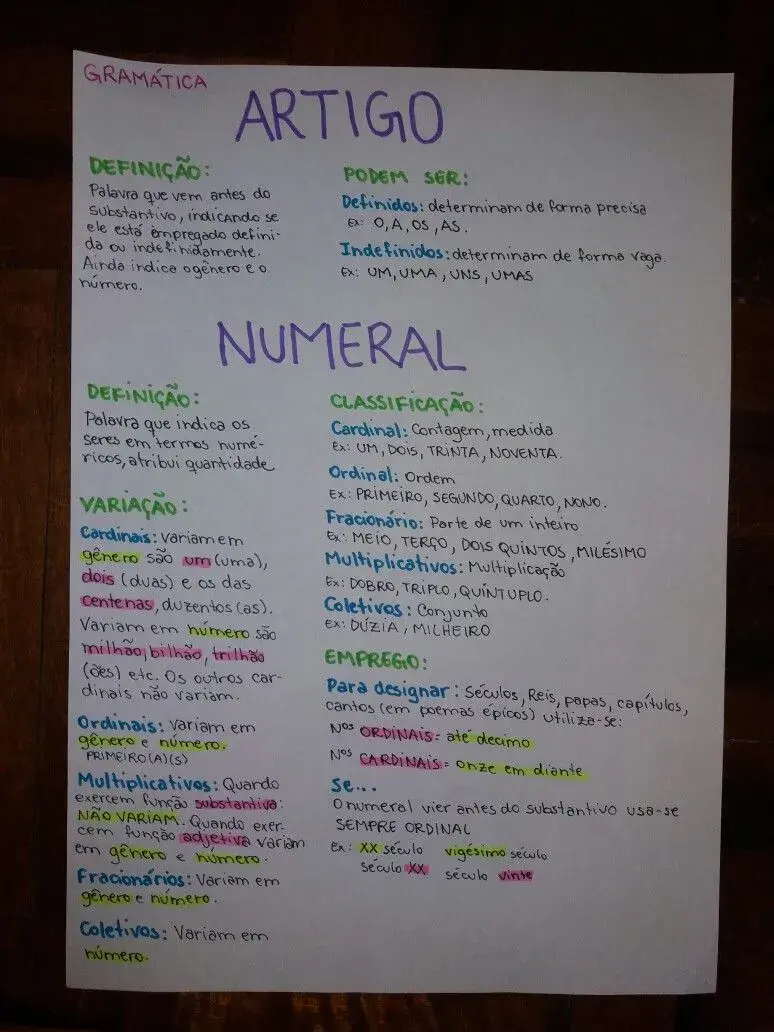 GRAMÁTICA
ARTIGO
DEFINIÇÃO:
Palavra que vem antes do
substantivo, indicando se
ele está empregado defini-
da ou indefinidamente.
Ainda indica o gênero e o
número.
PODEM SER:
Definidos: determinam de forma precisa
Ex: O, A, OS, AS.
Indefinidos: determinam de forma vaga.
Ex: UM, UMA, UNS, UMAS
NUMERAL
DEFINIÇÃO:
Palavra que indica os
seres em termos numé-
ricos, atribui quantidade
VARIAÇÃO:
Cardinais: variam em
gênero são um (uma),
dois (duas) e os das
centenas, duzentos (as).
Variam em número são
milhão, bilhão, trilhão
(ões) etc. Os outros car-
dinais não variam.
Ordinais: variam em
gênero e número.
PRIMEIRO(A)(S)
Multiplicativos: Quando
exercem função substantiva:
NÃO VARIAM. Quando exer-
cem função adjetiva variam
em gênero e número.
Fracionários: Variam em
gênero e número.
Coletivos: Variam em
número.
CLASSIFICAÇÃO:
Cardinal: Contagem, medida
Ex: UM, DOIS, TRINTA, NOVENTA.
Ordinal: Ordem
Ex: PRIMEIRO, SEGUNDO, QUARTO, NONO.
Fracionário: Parte de um inteiro
Ex: MEIO, TERÇO, DOIS QUINTOS, MILÉSIMO
Multiplicativos: Multiplicação
Ex: DOBRO, TRIPLO, QUÍNTUPLO.
Coletivos: Conjunto
Ex: DÚZIA, MILHEIRO
EMPREGO:
Para designar: Séculos, Reis, papas, capítulos,
cantos (em poemas épicos) utiliza-se:
Nos ORDINAIS= até decimo
Nos CARDINAIS= onze em diante
Se...
O numeral vier antes do substantivo usa-se
SEMPRE ORDINAL
Ex: XX século vigésimo século
século XX século vinte